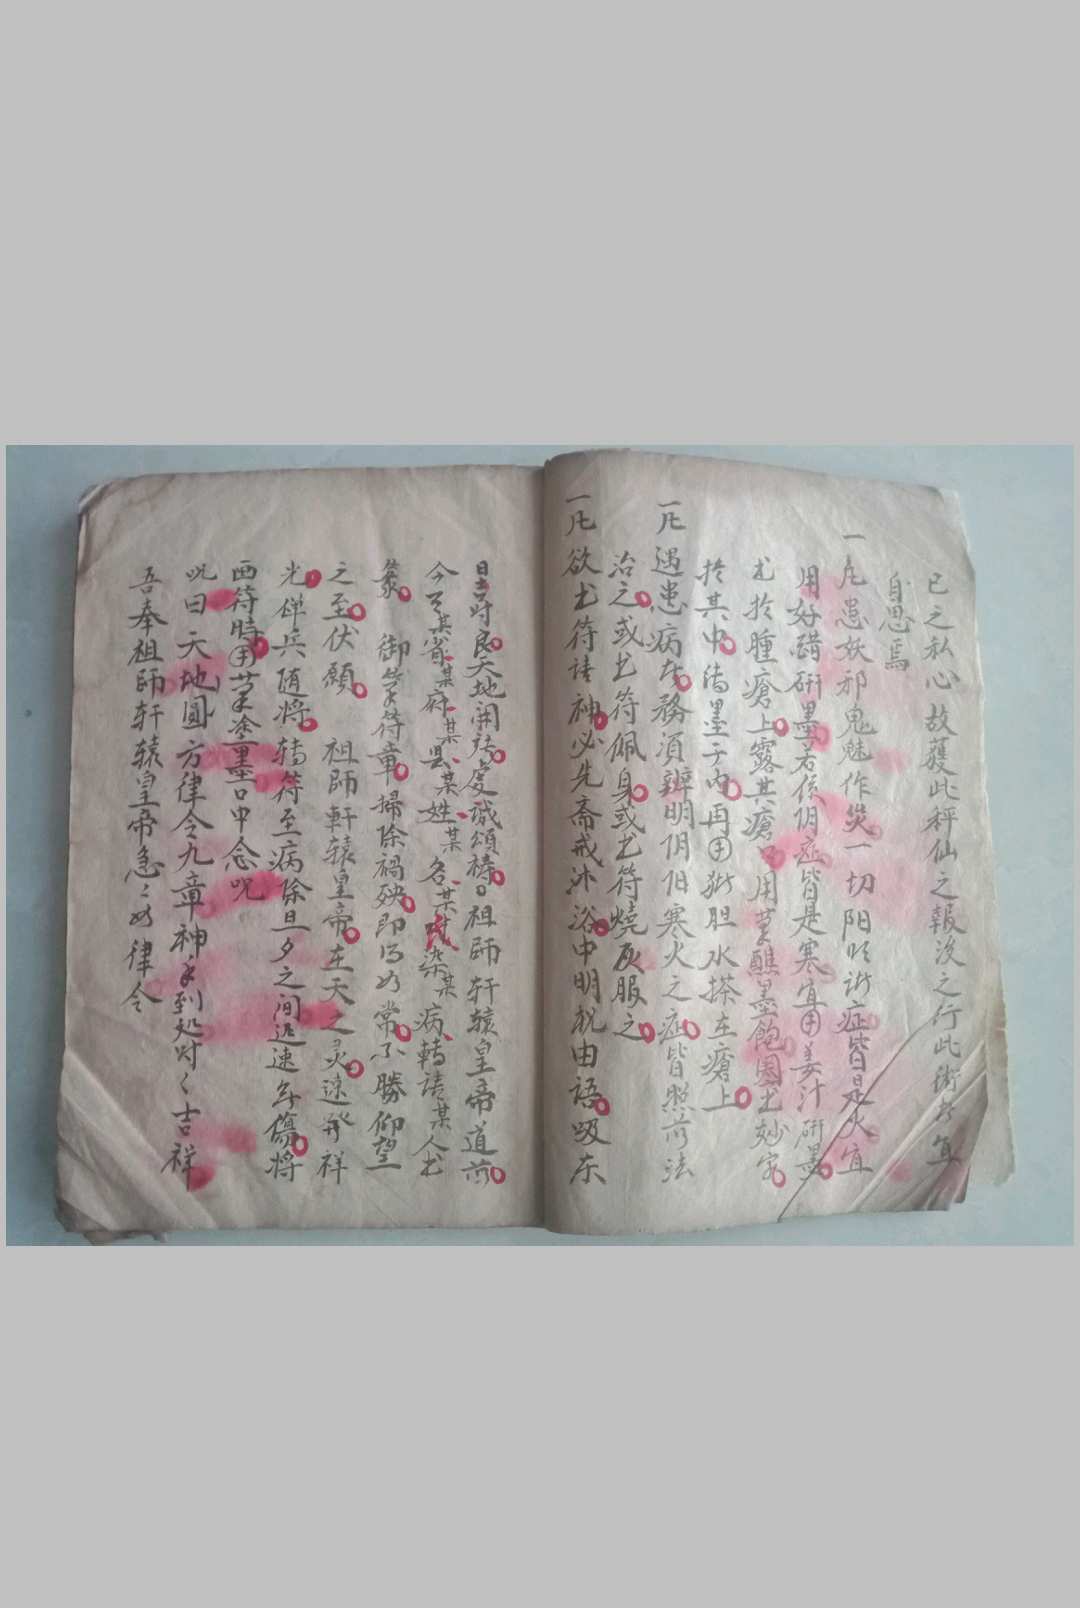 己之私心故獲此秤仙之報後之行此術者宜
自思焉
一凢患妖邪鬼魅作災一切阳順諸症皆是火宜
用好醋研墨若係阴症皆是寒宜用姜汁研墨
尤於腫瘡上露其瘡口用筆蘸墨飽圈土妙字
於其中清墨于内再用獄胆水搽在瘡上
一凢遇患病者務須辨明阴阳寒火之症皆照前法
治之或書符佩身或書符燒灰服之
一凢欲書符請神必先斋戒沐浴中明祝由語吸东
日吉时良天地開張虔誠頌禱曰祖師轩辕皇帝道前
今有某省某府某县某姓某名某某染某病轉請某人書
篆 御筆符章掃除禍殃即得如常不勝仰望
之至伏願 祖師軒辕皇帝在天之灵速發祥
光碑兵随将转符至病除旦夕之间迟速無傷将
画符時用筆塗墨口中念呪
呪曰天地圓方律令九章神筆到処时々吉祥
吾奉祖师轩辕皇帝急々如律令